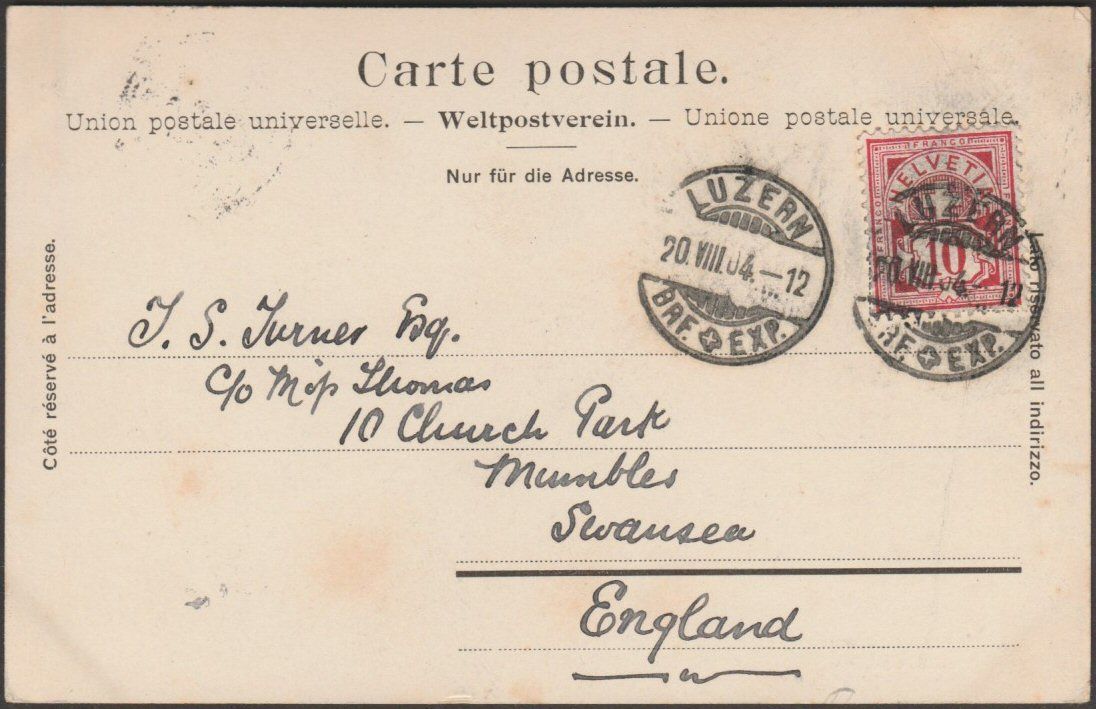 Carte postale.
Union postale universelle. — Weltpostverein. — Unione postale universale.
Nur für die Adresse.
Côté réservé à l'adresse.
Lato riservato all indirizzo.
FRANCO
HELVETIA
FRANCO
10
LUZERN
20.VIII.04.–12
BRF. EXP.
LUZERN
20.VIII.04.–12
BRF. EXP.
J. S. Turner Esq.
c/o Miss Thomas
10 Church Park
Mumbles
Swansea
England